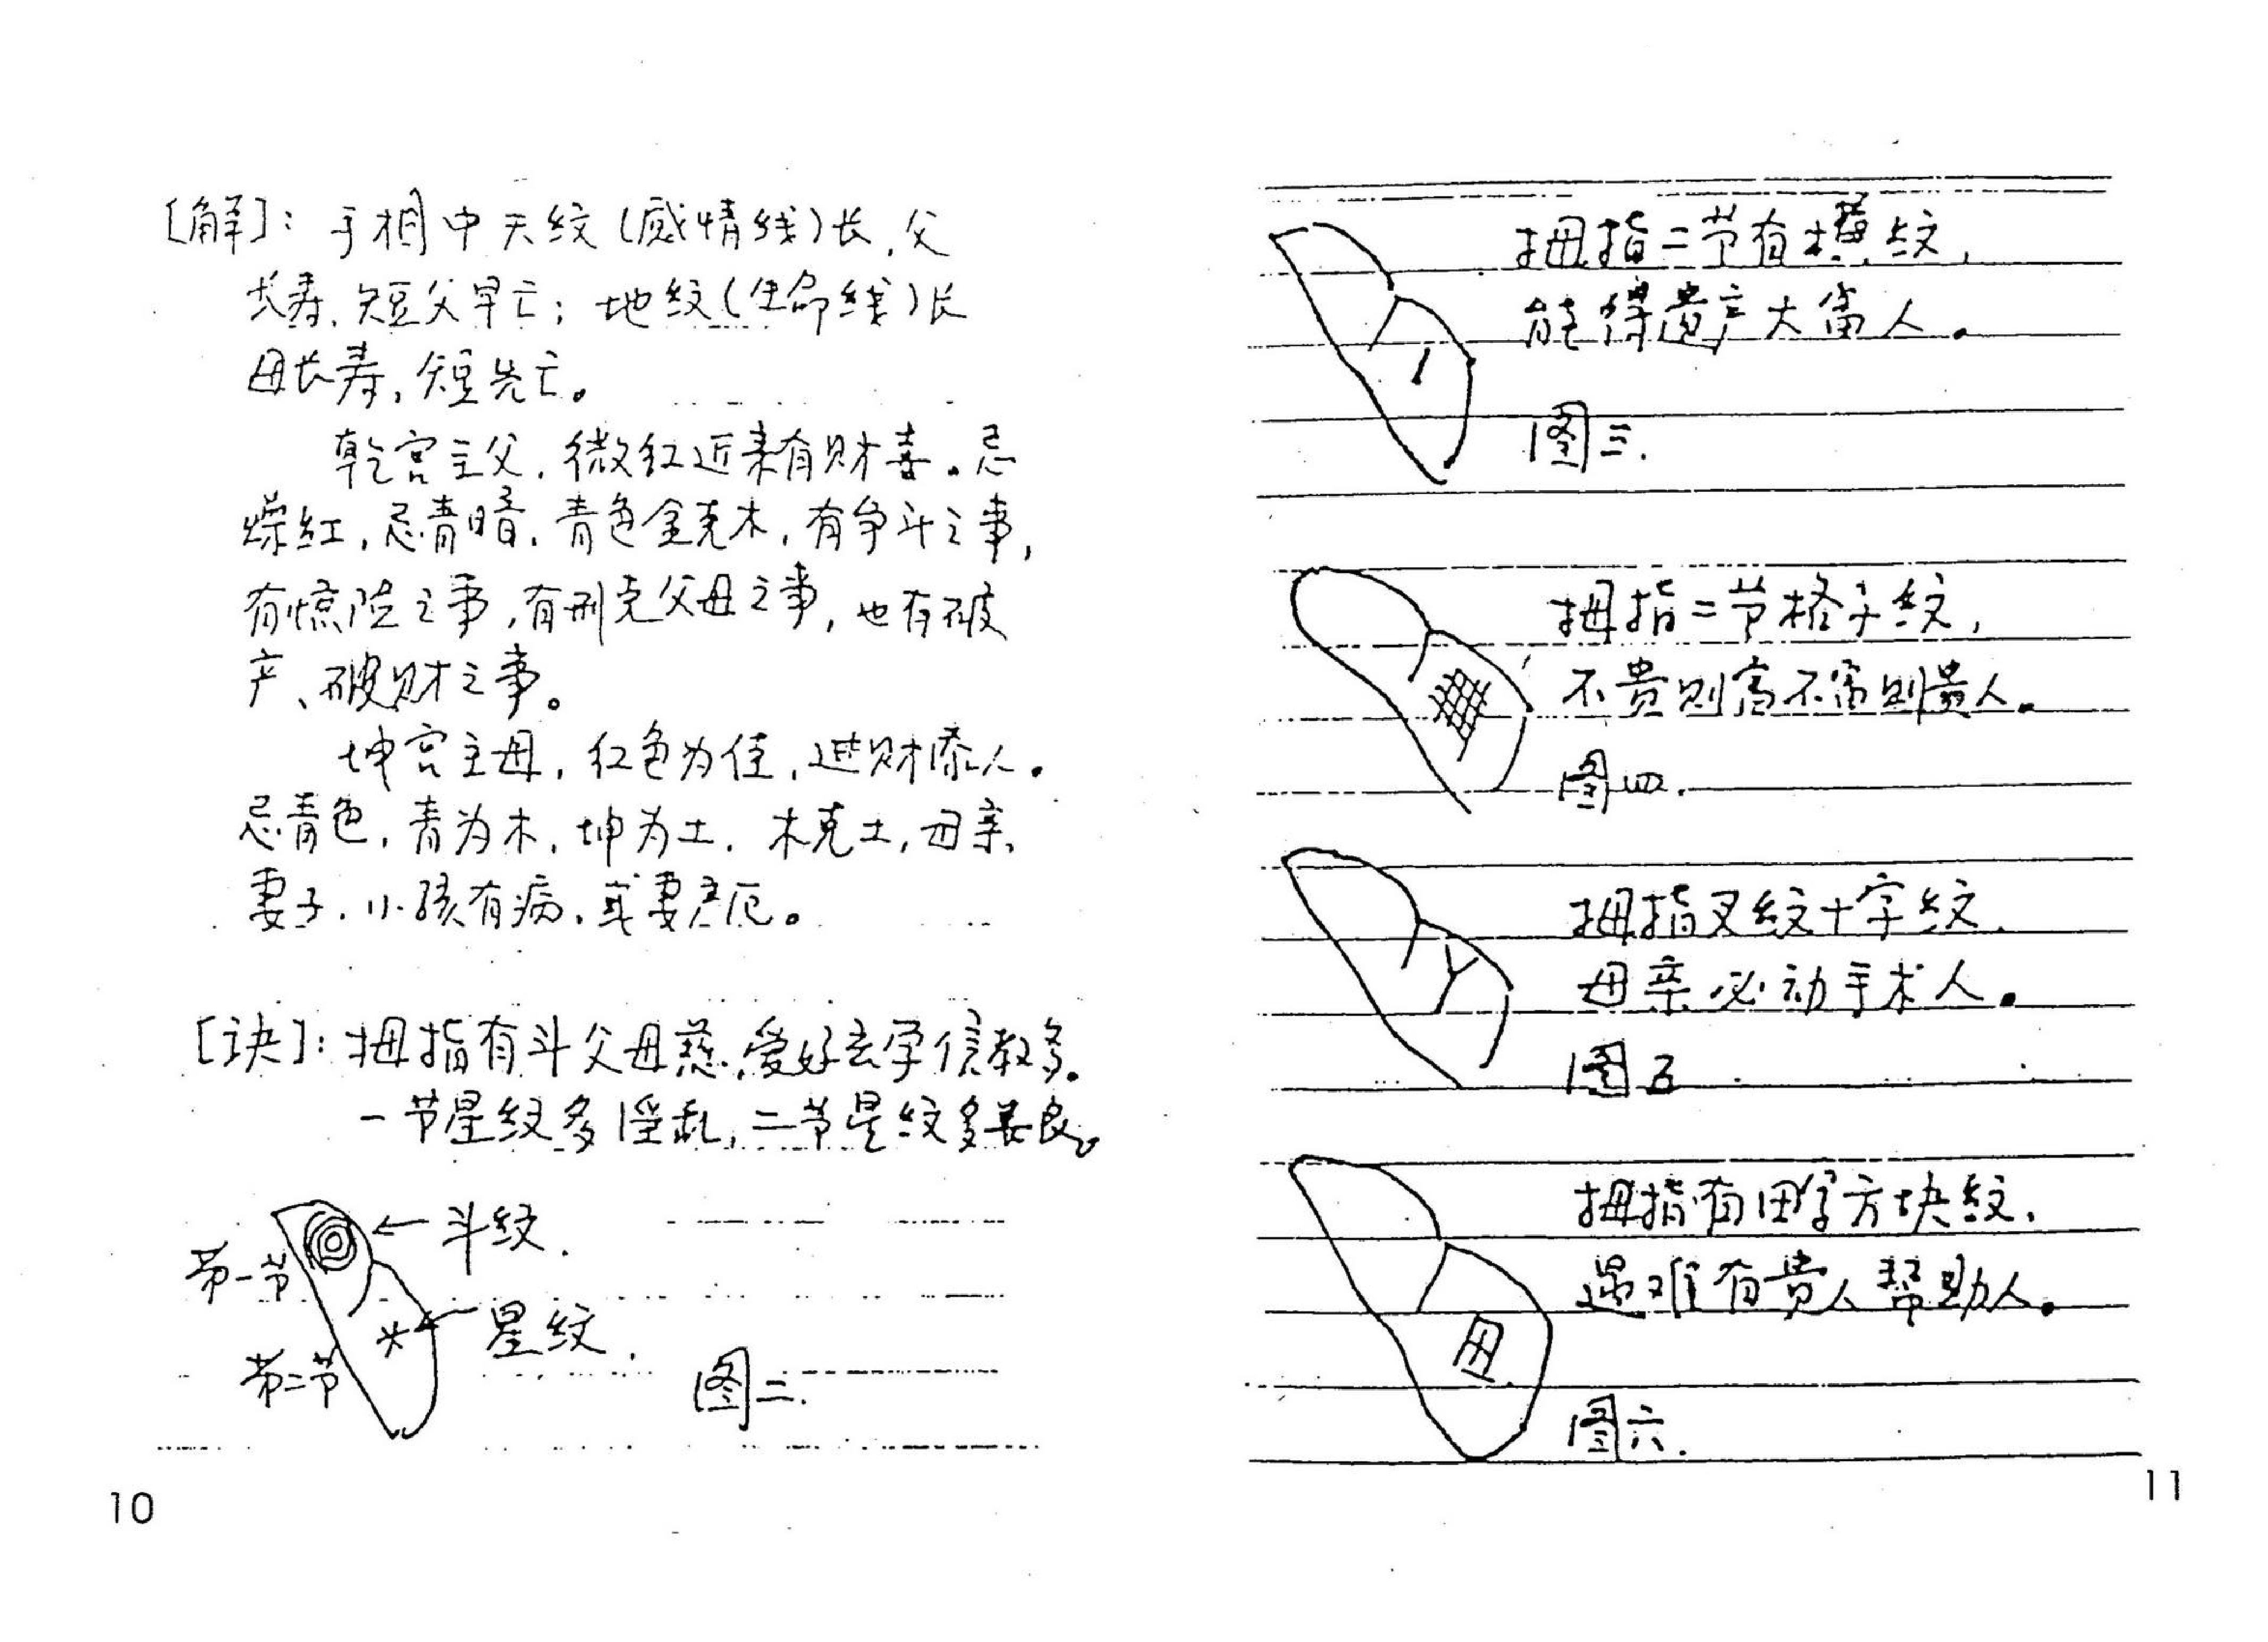 [解]：手相中天纹(感情线)长，父
长寿，短父早亡；地纹(生命线)长
母长寿，短先亡。
乾宫主父，微红近来有财喜。忌
燥红，忌青暗，青色金克木，有争斗之事，
有惊险之事，有刑克父母之事，也有破
产、破财之事。
坤宫主母，红色为佳，进财添人。
忌青色，青为木，坤为土，木克土，母亲，
妻子，小孩有病，或妻产厄。
[诀]：拇指有斗父母慈，爱好玄学信教多。
一节星纹多淫乱，二节星纹多善良。
斗纹.
第一节
星纹.
第二节
图二.
10
拇指二节有横纹，
能得遗产大富人。
图三.
拇指二节格子纹，
不贵则富不富则贵人。
图四.
拇指叉纹十字纹，
母亲必动手术人。
图五
拇指有田字方块纹，
遇难有贵人帮助人。
图六.
11